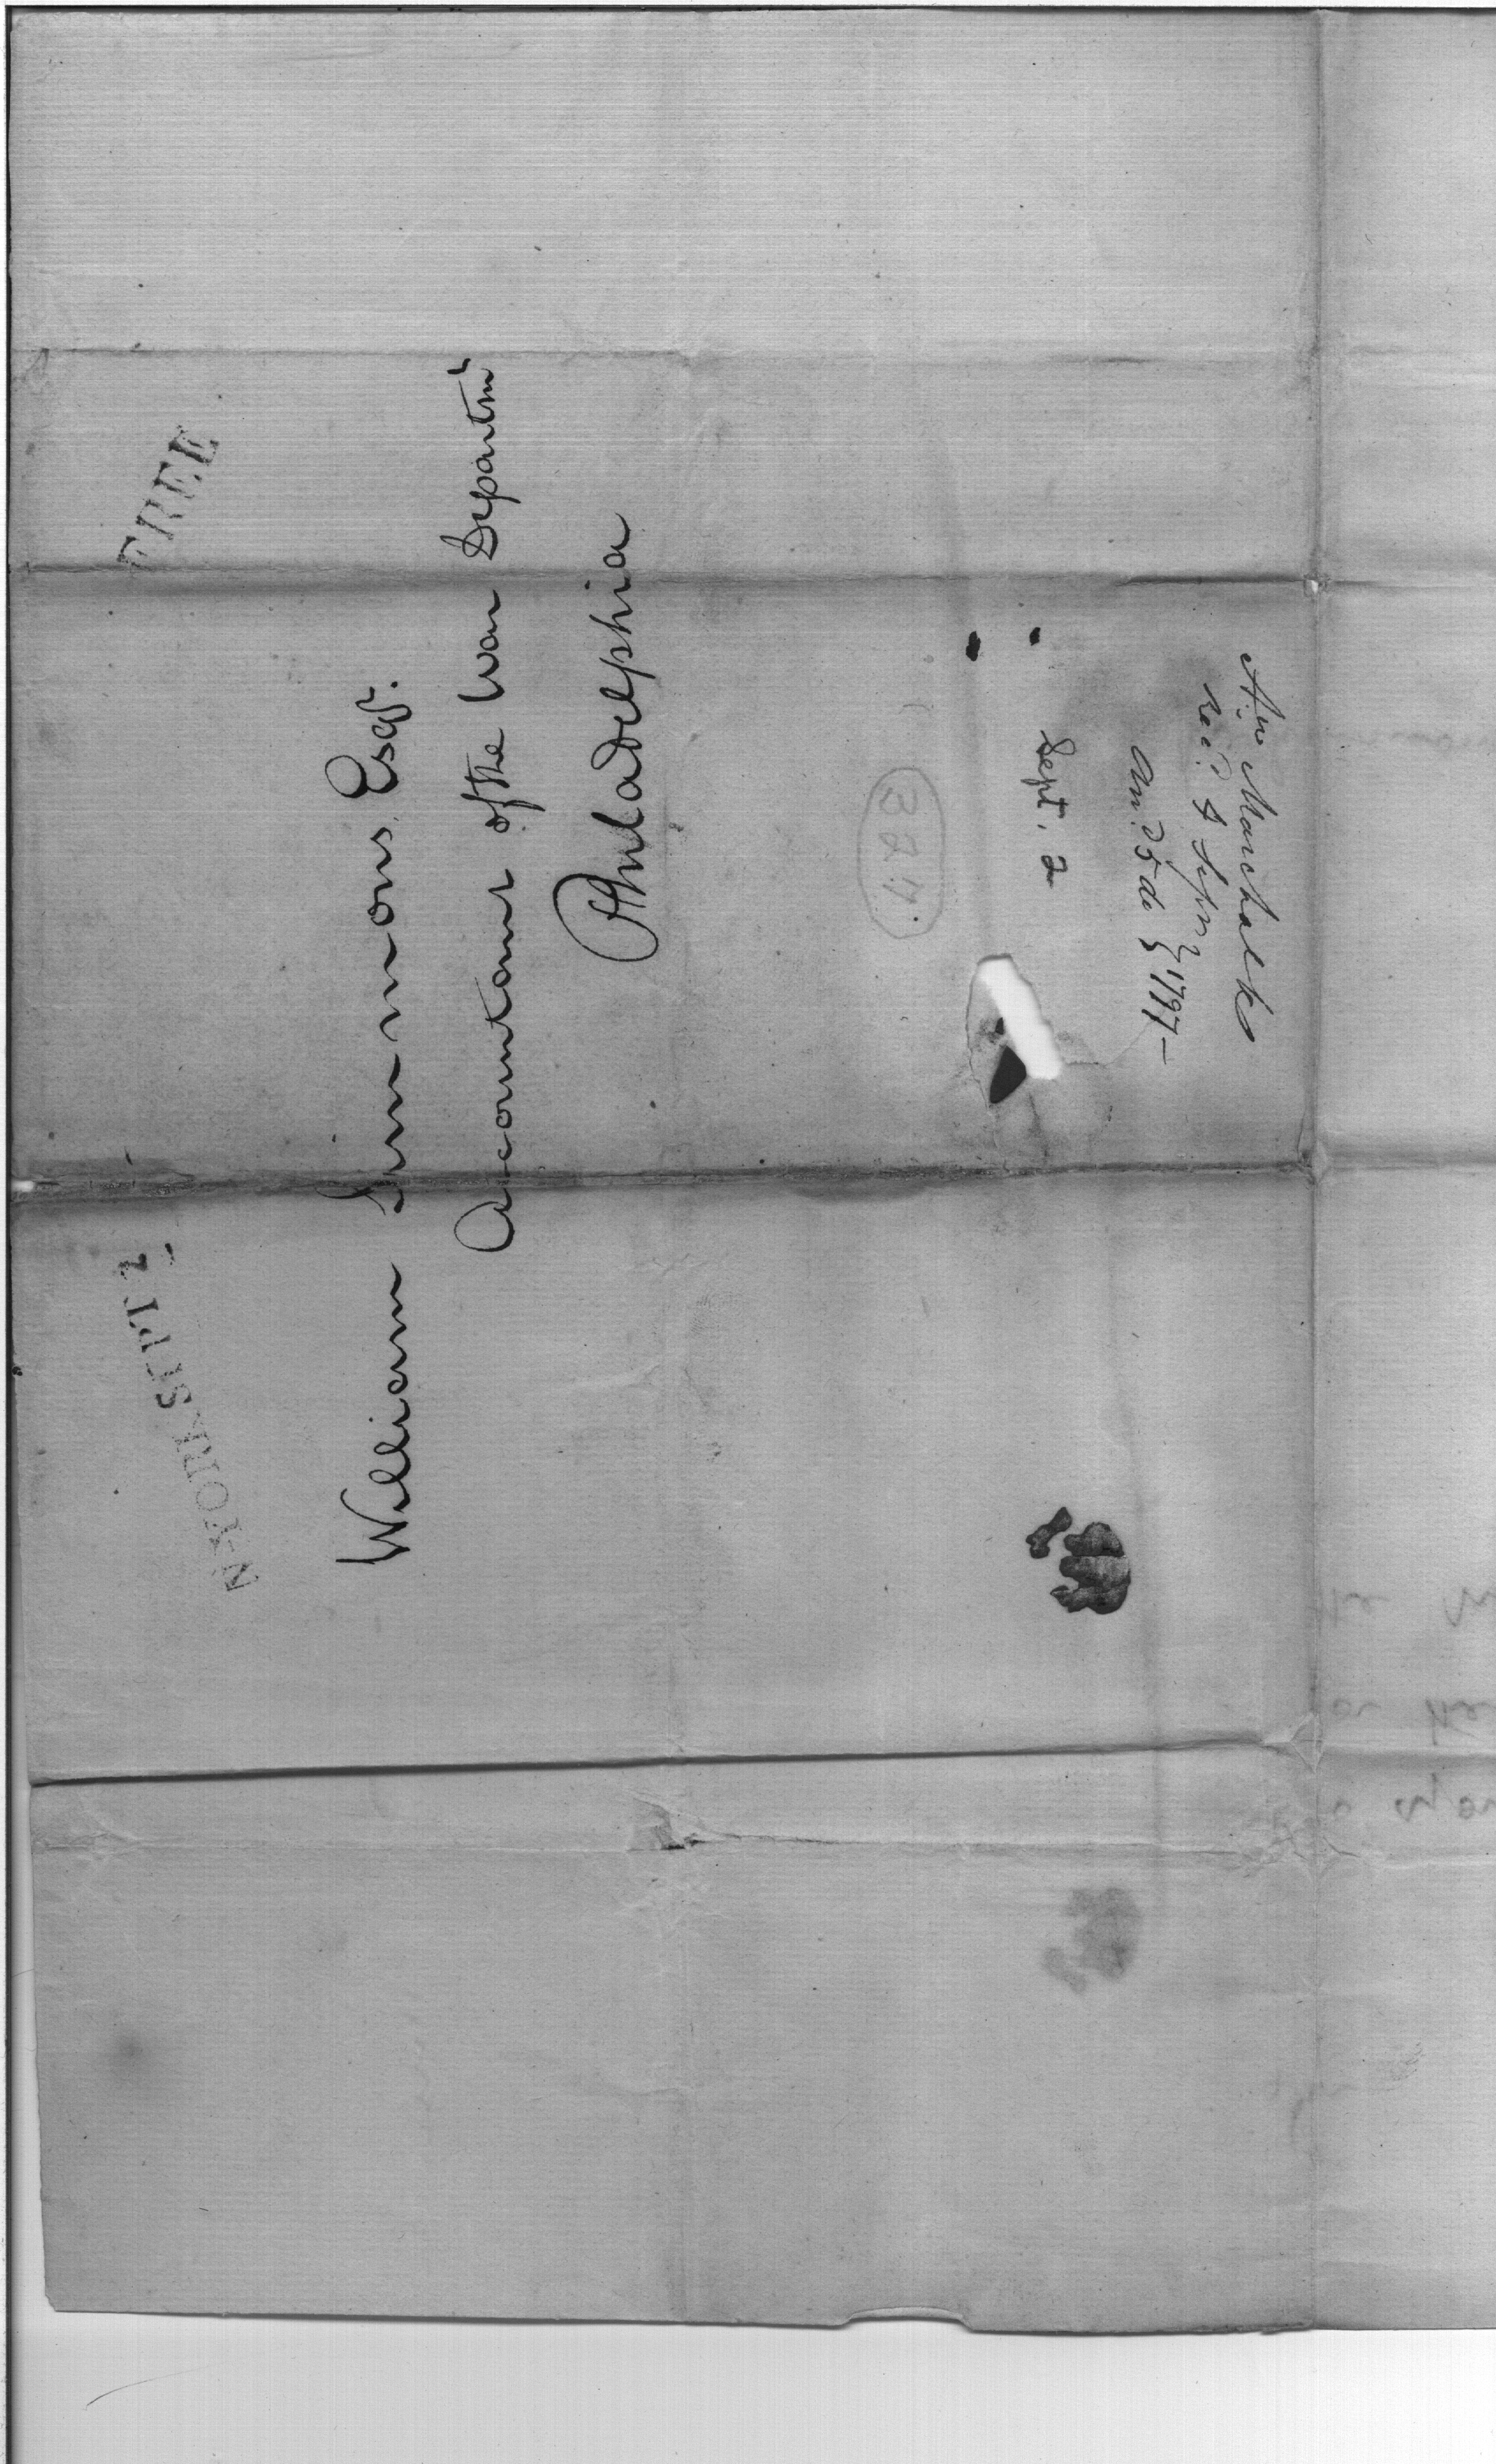 FREE
N-YORK SEPT 2
William Simmons, Esqr.
Accountant of the War Departmt
Philadelphia
3824.
Sept. 2
Anw Marschalk
Recd 4 Septr
Ansd 5 do } 1797 –